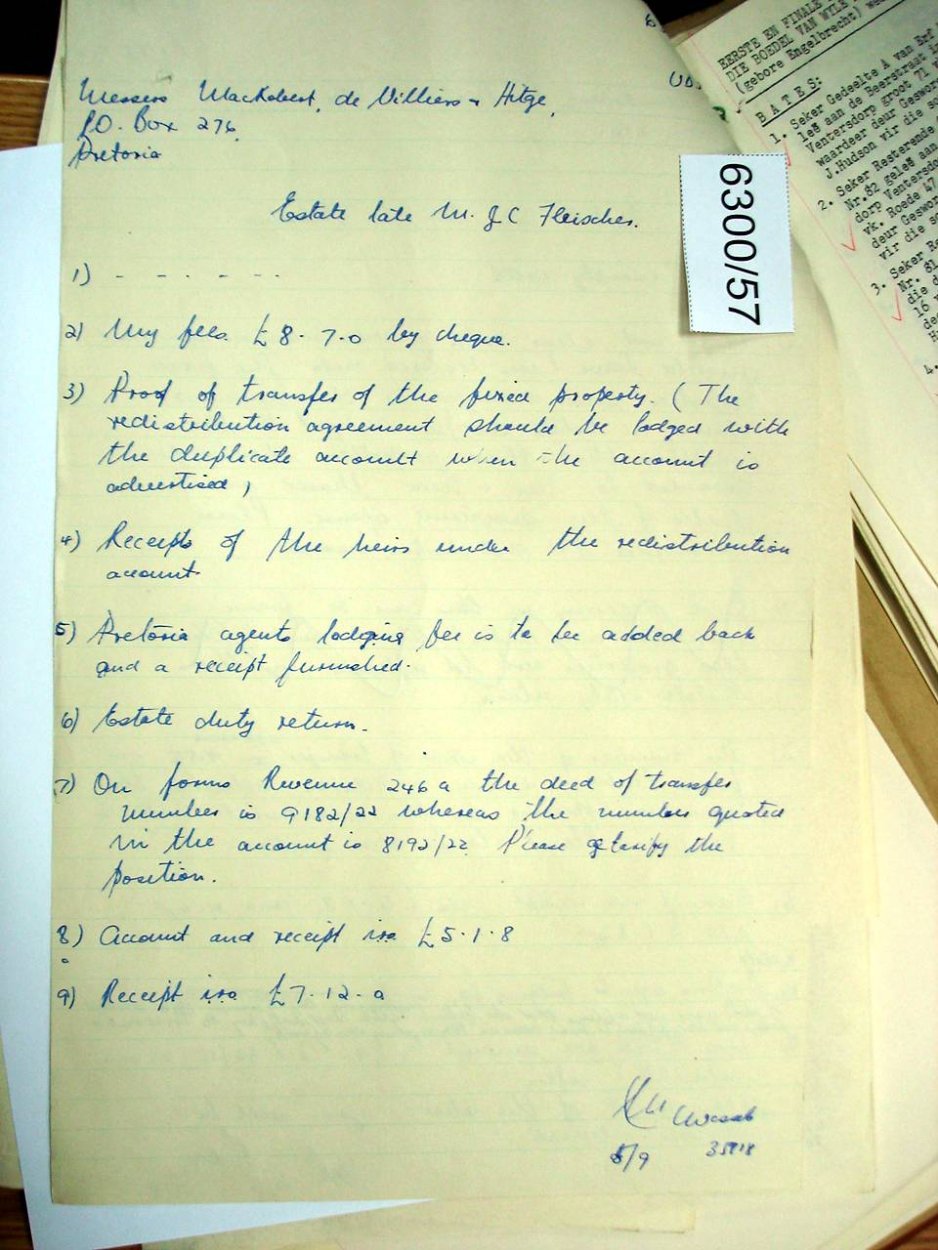 Messers MacRobert, de Villiers & Hitge,
P.O. Box 276
Pretoria
Estate late M. J C Fleischer.
6300/57
1) - - - - - -
2) My fees £8-7-0 by cheque.
3) Proof of transfer of the fixed property. (The
redistribution agreement should be lodged with
the duplicate account when the account is
advertised)
4) Receipts of the heirs under the redistribution
account
5) Pretoria agents lodging fee is to be added back
and a receipt furnished.
6) Estate duty return.
7) On forms Revenue 246 a the deed of transfer
number is 9182/22 whereas the number quoted
in the account is 8192/22 Please the
position.
8) Account and receipt iro £5-1-8
9) Receipt iro £7-12-
5/9
EERSTE EN FINALE
DIE BOEDEL VAN WYLE
(gebore Engelbrecht)
BATES:
1. Seker Gedeelte A van Erf
leë aan de Beerstraat
Ventersdorp groot 71
waardeer deur Geswor
J.Hudson vir die
2. Seker Resterende
Nr.82 geleë aan
dorp Ventersdo
vk. Roede 47
deur Geswor
vir die
3. Seker Re
Nr. 81
die
16
4.